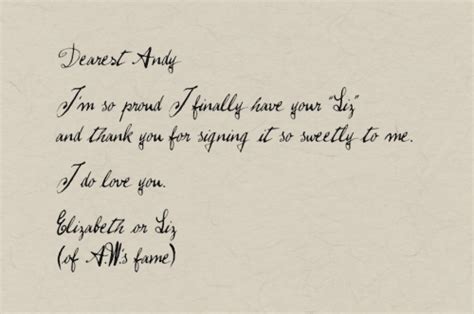 Dearest Andy
I'm so proud I finally have your "Liz"
and thank you for signing it so sweetly to me.
I do love you.
Elizabeth or Liz
(of A.W.'s fame)